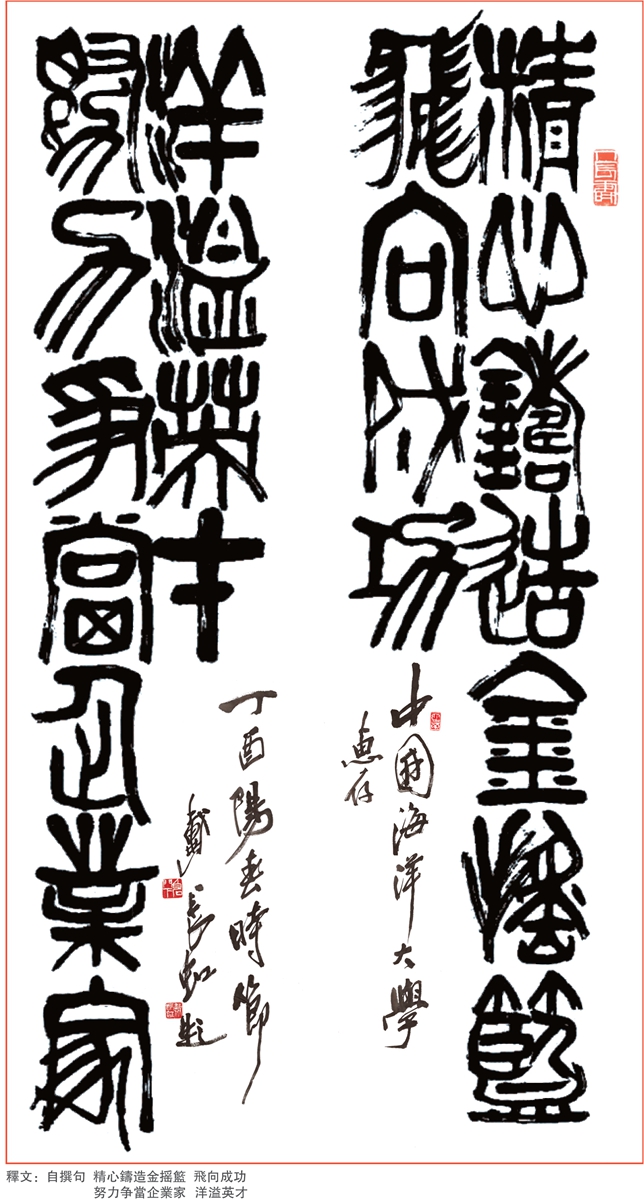 精心鑄造金摇籃
飛向成功
中國海洋大學
惠存
努力争當企業家
洋溢英才
丁酉陽春時節
戴長虹題
釋文：自撰句 精心鑄造金摇籃 飛向成功
努力争當企業家 洋溢英才